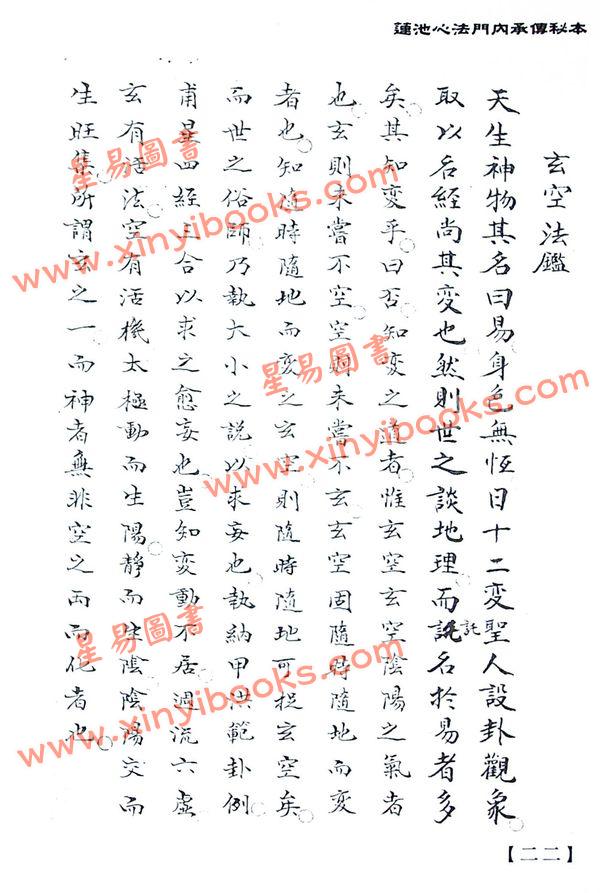 蓮池心法門內承傳秘本
玄空法鑑
天生神物其名曰易身色無恆日十二變聖人設卦觀象
取以名經尚其變也然則世之談地理而託名於易者多
託
矣其知變乎曰否知變之道者惟玄空玄空陰陽之氣者
也玄則未嘗不空空則未嘗不玄玄空固隨時隨地而變
者也知隨時隨地而變之玄空則隨時隨地可捉玄空矣
而世之俗師乃執大小之說以求妄也執納甲洪範卦例
甫畢四經三合以求之愈妄也豈知變動不居週流六虛
玄有 法空有活機太極動而生陽靜而生陰陰陽交而
生旺集所謂玄之一而神者無非空之兩而化者也
【二二】
星易圖書
www.xinyibooks.com
星易圖書
www.xinyibooks.com
星易圖書
www.xinyibooks.com